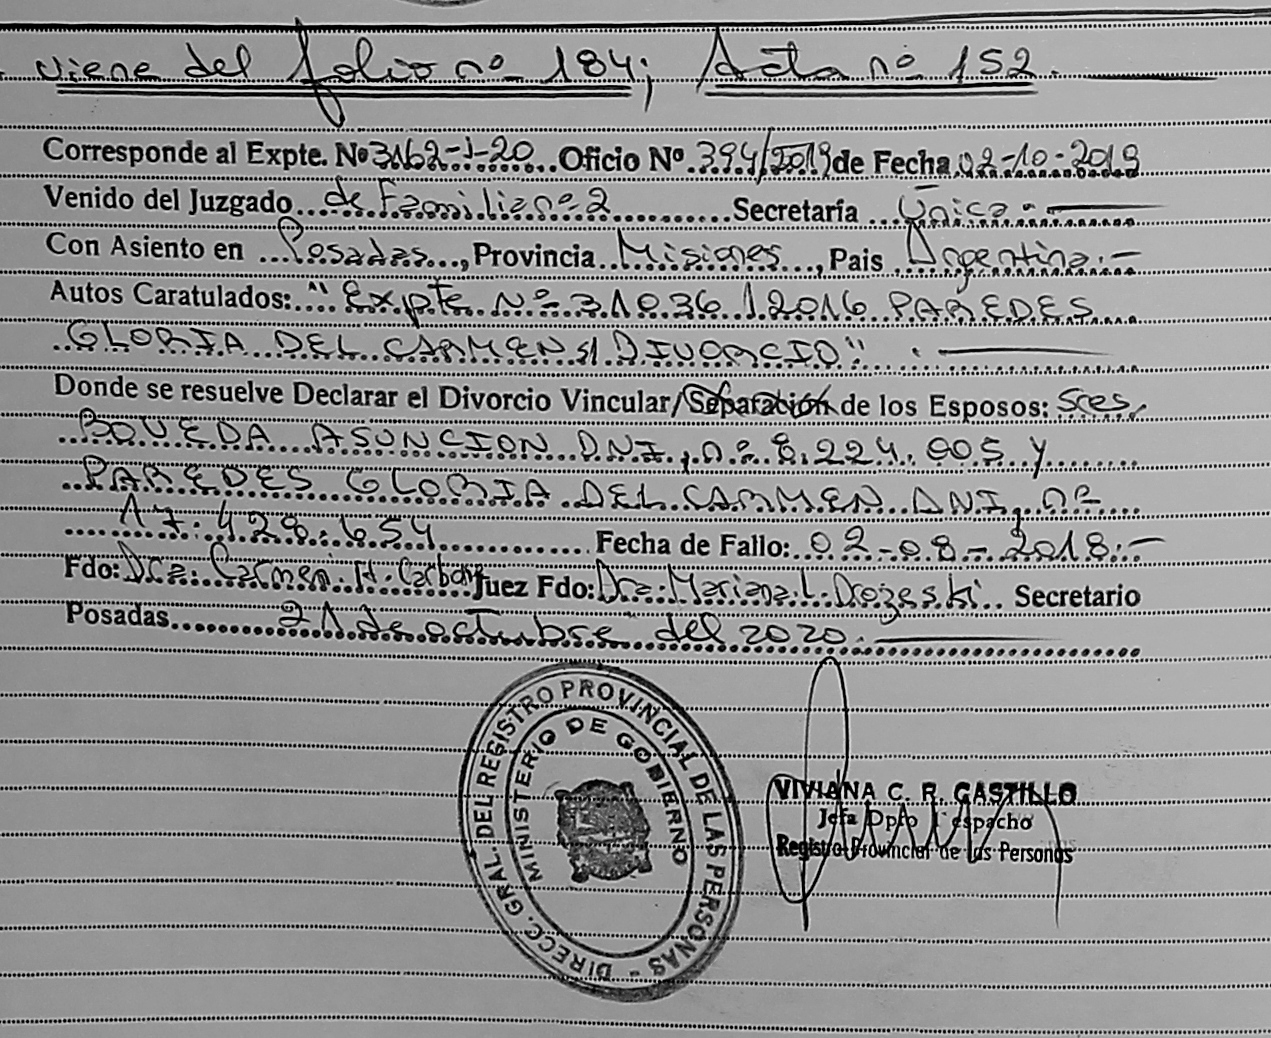 viene del folio nº 184; Acta nº 152.
Corresponde al Expte. Nº 3162-J-20 Oficio Nº 394/2019 de Fecha 02-10-2019
Venido del Juzgado de Familia nº 2 Secretaría Única.-
Con Asiento en Posadas, Provincia Misiones, Pais Argentina.-
Autos Caratulados: "Expte Nº 31036/2016 PAREDES
GLORIA DEL CARMEN S/ DIVORCIO".
Donde se resuelve Declarar el Divorcio Vincular/Separación de los Esposos: Sres,
BOVEDA ASUNCION DNI, nº 8.224.005 y
PAREDES GLORIA DEL CARMEN DNI, nº
17.428.654 Fecha de Fallo: 02-08-2018.-
Fdo: Dra. Carmen H. Carbone Juez Fdo: Dra. Mariana L. Dozeski Secretario
Posadas 21 de octubre del 2020.
DIRECC. GRAL. DEL REGISTRO PROVINCIAL DE LAS PERSONAS -
MINISTERIO DE GOBIERNO
VIVIANA C. R. CASTILLO
Jefa Dpto Despacho
Registro Provincial de las Personas